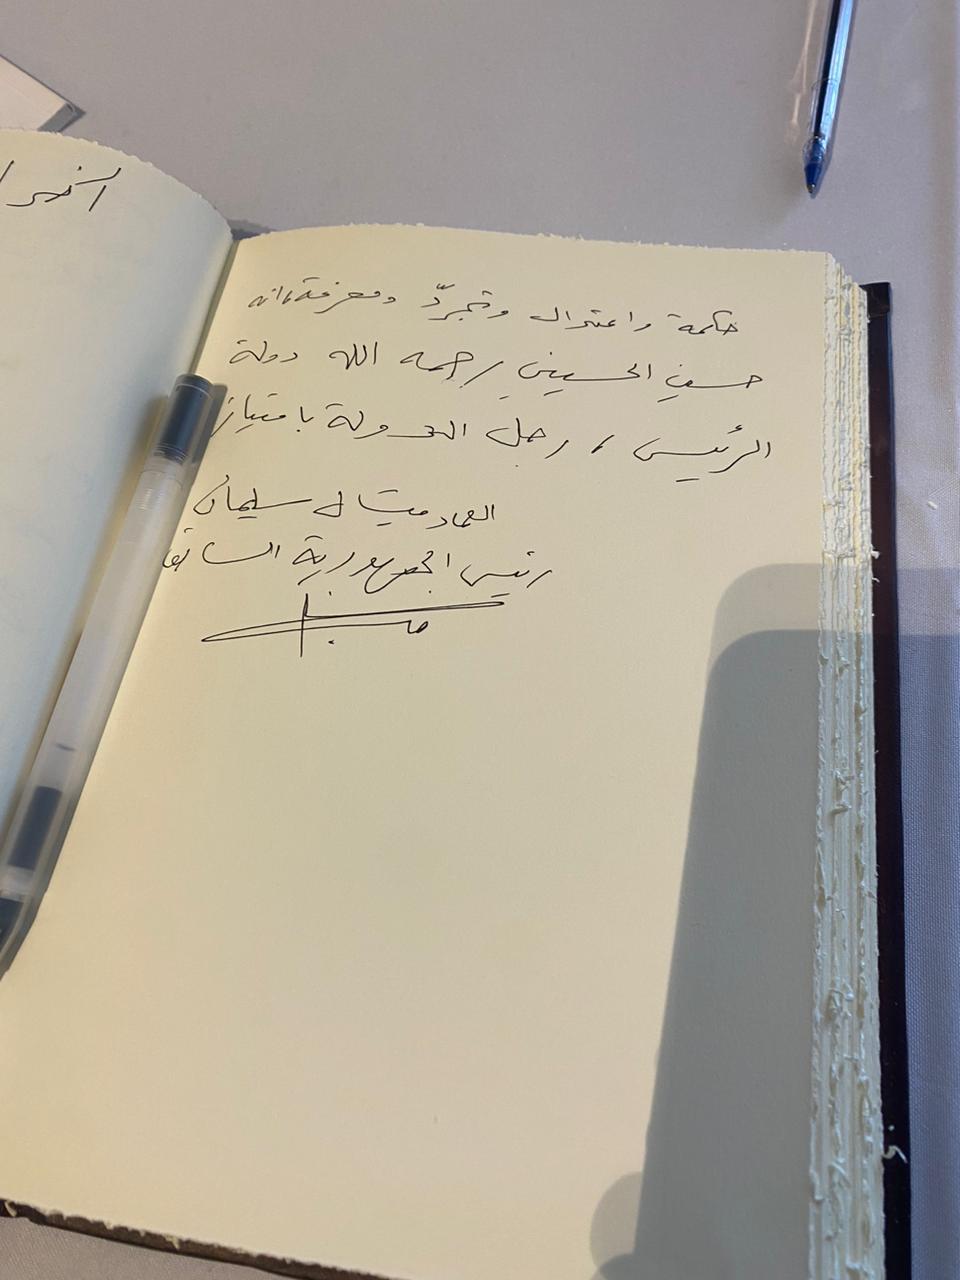 حكمة واعتدال وتجرّد ومعرفة انه
حسين الحسيني رحمه الله دولة
الرئيس، رجل الدولة بامتياز
العماد ميشال سليمان
رئيس الجمهورية السابق